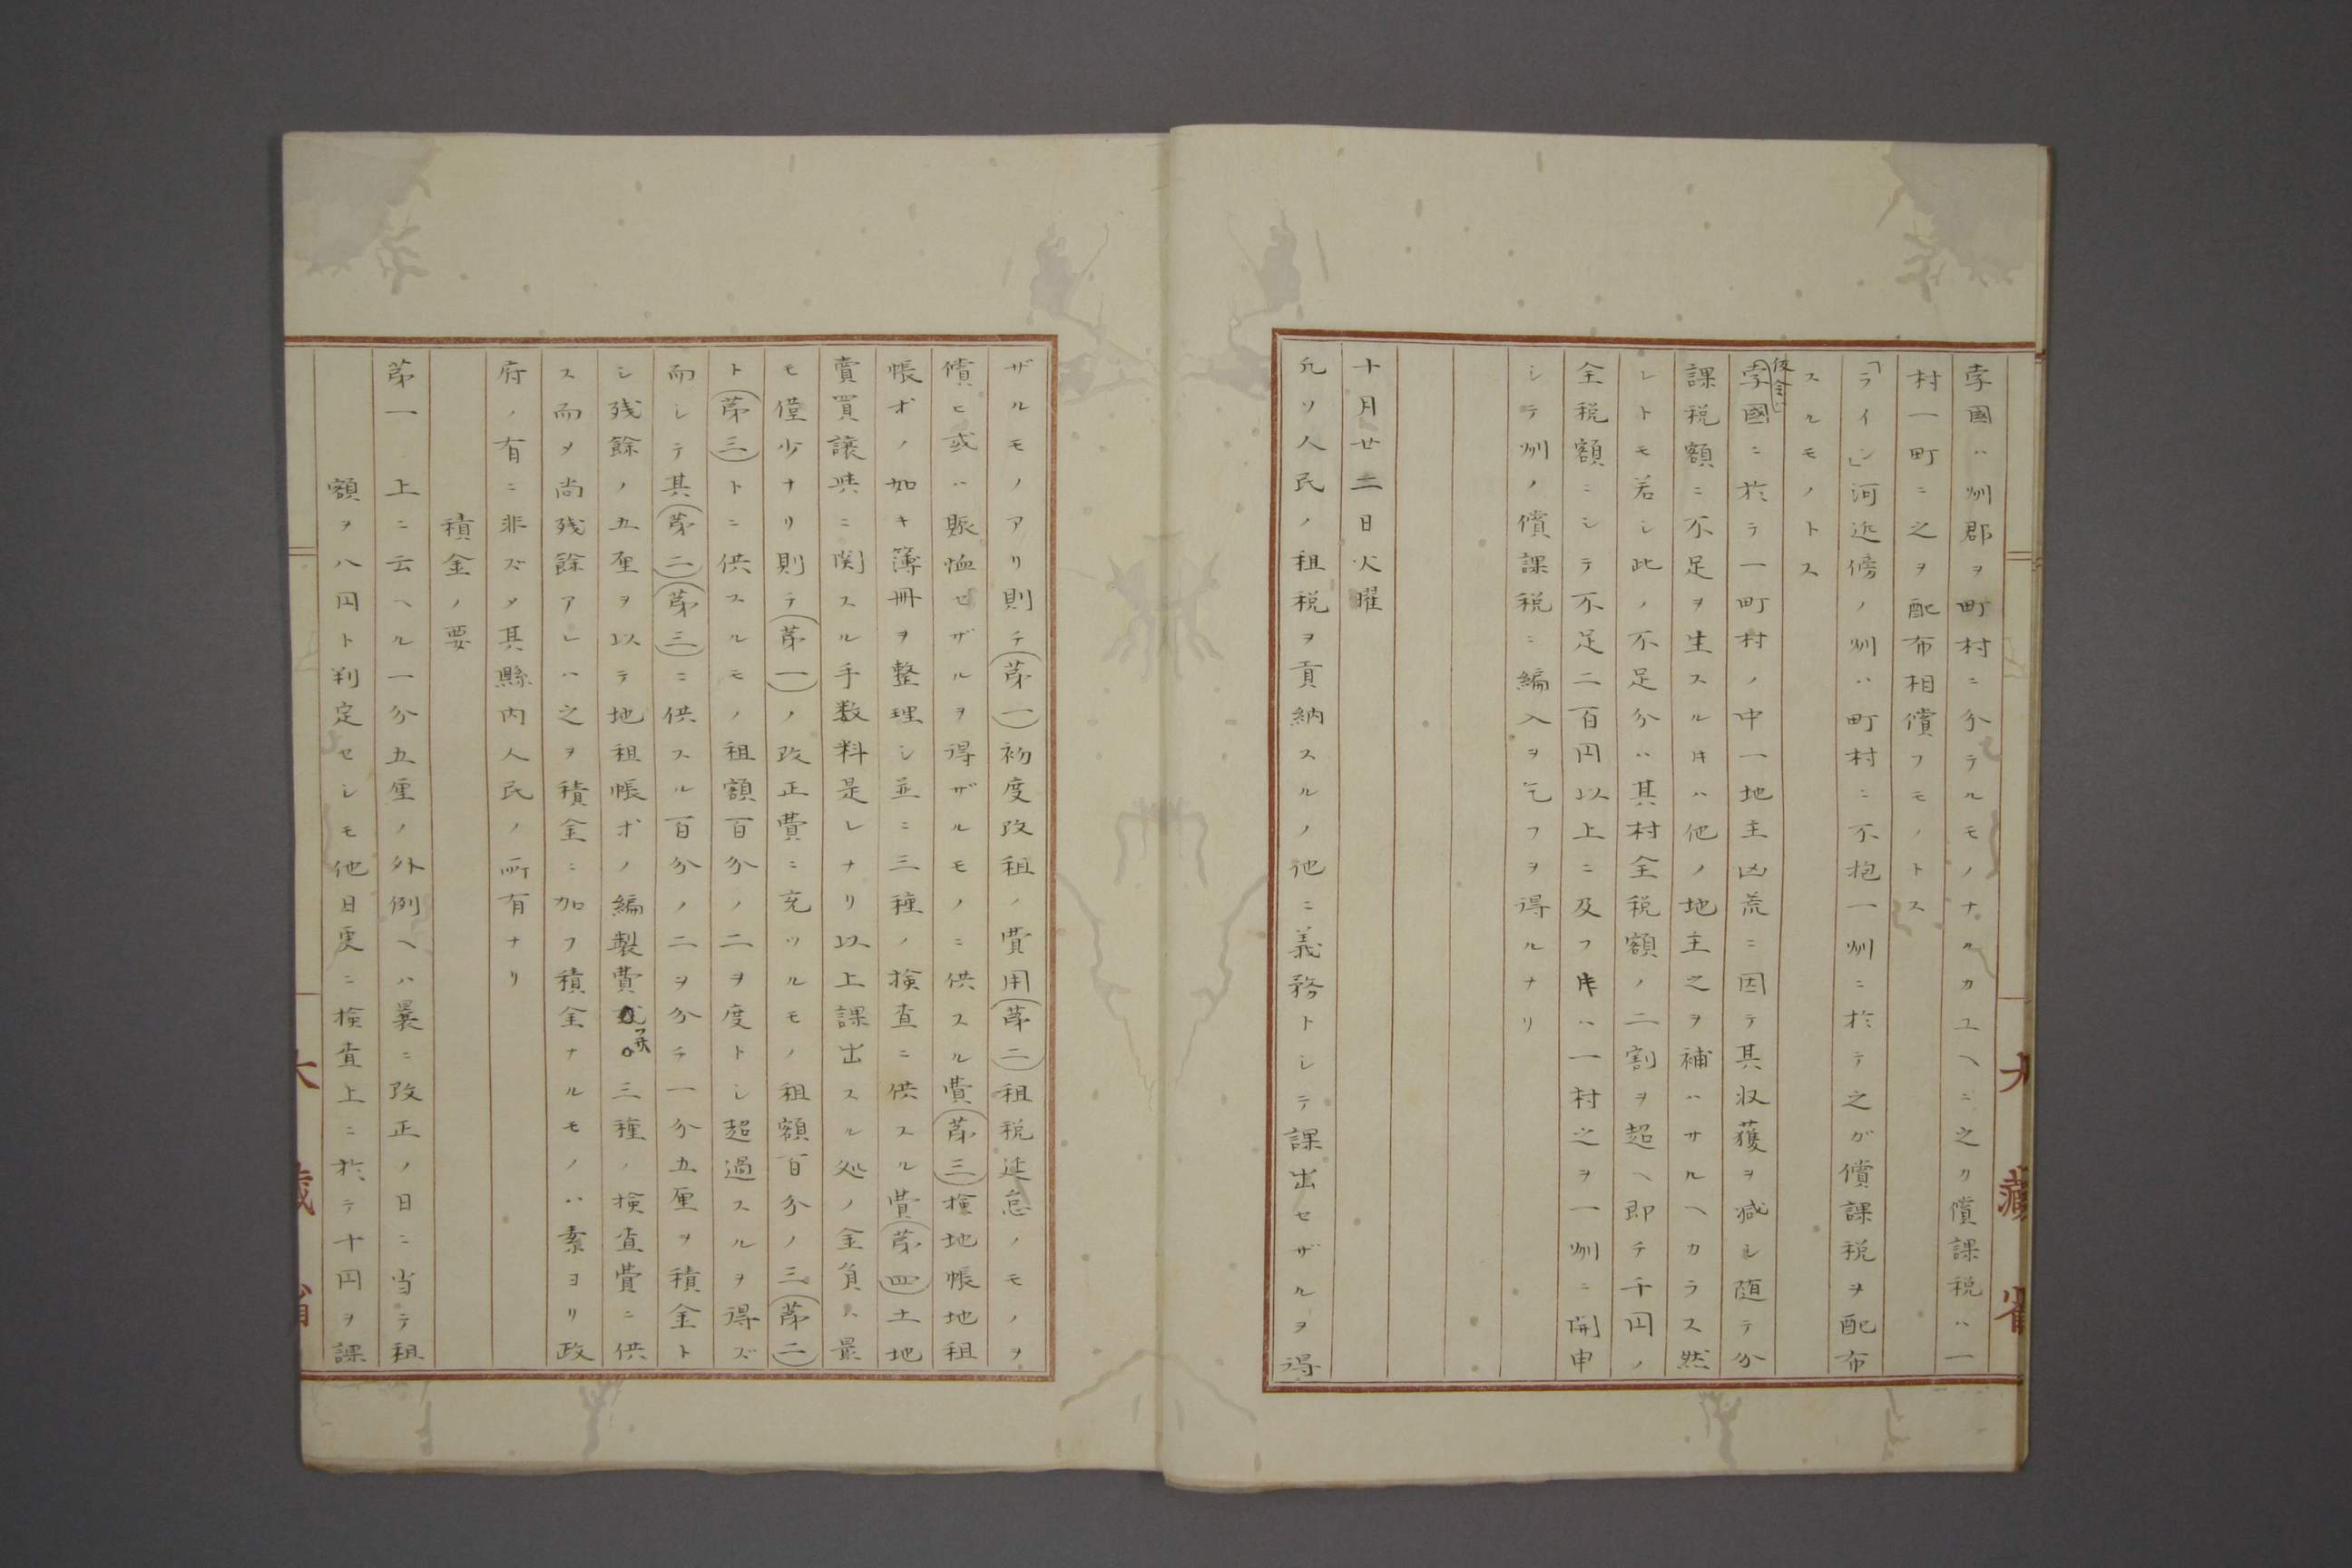 孛國ハ州郡ヲ町村ニ分テルモノナルカユヘニ之カ償課税ハ一
村一町ニ之ヲ配布相償フモノトス
「ライン」河近傍ノ州ハ町村ニ不抱一州ニ於テ之が償課税ヲ配布
スルモノトス
仮令ハ
孛國ニ於テ一町村ノ中一地主凶荒ニ因テ其収獲ヲ减シ随テ分
課税額ニ不足ヲ生スルꓘハ他ノ地主之ヲ補ハサルヘカラス然
レトモ若シ此ノ不足分ハ其村全税額ノ二割ヲ超ヘ即チ千円ノ
全税額ニシテ不足二百円以上ニ及フꓘハ一村之ヲ一州ニ開申
シテ州ノ償課税ニ編入ヲ乞フヲ得ルナリ
十月廿二日火曜
凢ソ人民ノ租税ヲ貢納スルノ他ニ義務トシテ課出セザルヲ得
ザルモノアリ則テ(苐一)初度改租ノ費用(苐二)租税延怠ノモノヲ
償ヒ或ハ賑恤セザルヲ得ザルモノニ供スル費(苐三)検地帳地租
帳オノ如キ簿冊ヲ整理シ並ニ三種ノ検査ニ供スル費(苐四)土地
賣買譲與ニ関スル手数料是レナリ以上課出スル処ノ金負ハ最
モ僅少ナリ則テ(苐一)ノ改正費ニ充ツルモノ租額百分ノ三(苐二)
ト(苐三)トニ供スルモノ租額百分ノ二ヲ度トシ超過スルヲ得ズ
而シテ其(苐二)(苐三)ニ供スル百分ノ二ヲ分チ一分五厘ヲ積金ト
シ残餘ノ五厘ヲ以テ地租帳オノ編製費并三種ノ検査費ニ供
ス而メ尚残餘アレハ之ヲ積金ニ加フ積金ナルモノハ素ヨリ政
府ノ有ニ非ズメ其縣内人民ノ所有ナリ
積金ノ要
苐一上ニ云ヘル一分五厘ノ外例ヘハ曩ニ改正ノ日ニ当テ租
額ヲ八円ト判定セシモ他日更ニ検査上ニ於テ十円ヲ課
大藏省
大藏省